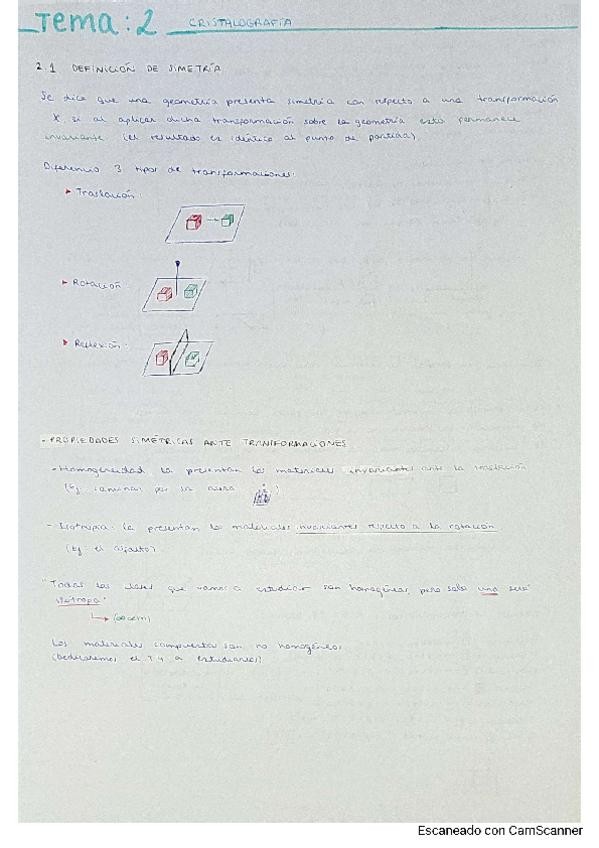 Tema: 2 CRISTALOGRAFÍA
2.1 DEFINICIÓN DE SIMETRÍA
Se dice que una geometría presenta simetría con respecto a una transformación
X si al aplicar dicha transformación sobre la geometría esta permanece
invariante (el resultado es idéntico al punto de partida).
Diferencio 3 tipos de transformaciones:
Traslación:
Rotación:
Reflexión:
- PROPIEDADES SIMÉTRICAS ANTE TRANSFORMACIONES
- Homogeneidad: la presentan los materiales invariantes ante la traslación
(Ej. caminar por la )
- Isotropía: la presentan los materiales invariantes respecto a la rotación
(Ej: el asfalto)
"Todas las que vamos a estudiar son homogéneas, pero solo una será
isótropa"
Los materiales compuestos son no homogéneos
(Dedicaremos el T4 a estudiarlos)
Escaneado con CamScanner